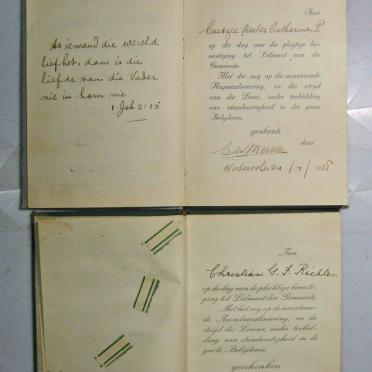 As iemand die wereld
liefhet, dan is die
liefde van die Vader
nie in hom nie.
1 Joh 2:15
Aan
Coetzee Hester Catharina P.
op die dag van die plegtige be-
vestiging tot Lidmaat van die
Gemeente.
Met die oog op die aanstaande
Nagmaalsviering, en die strijd
van die Lewe, onder toebidding
van standvastigheid in die goeie
Belydenis,
geskenk
deur
Aan
Christian G. F. Richter
op de dag van de plechtige beves-
ging tot Lidmaat der Gemeente.
Met het oog op de aanstaan-
de Avondmaalsviering, en de
strijd des Levens, onder toebid-
ding van standvastigheid in de
goede Belijdenis,
geschonken